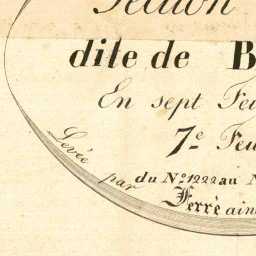 Section
dite de B
En sept Feu
7e Feu
du No 1222 au N
Levée par Ferré ainé